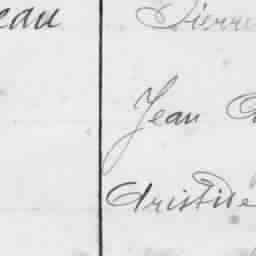 eau Pierre
Jean
Aristide